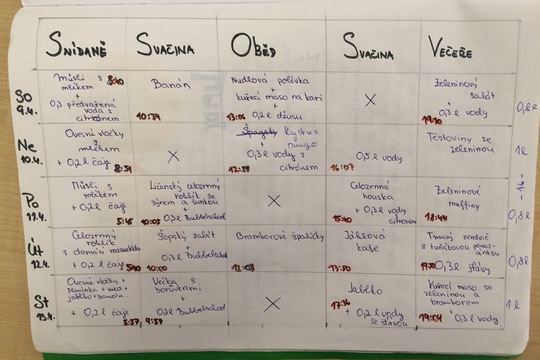 SNÍDANĚ SVAČINA OBĚD SVAČINA VEČEŘE
SO
9.4.
Müsli s
mlékem
+
0,3 předvařená
voda s
citrónem
Banán
10:34
Nudlová polévka
+
kuřecí maso na kari
+ 0,2 l džusu
13:06
X
Zeleninový
salát
0,3 l vody
19:30
0,8 l
Ne
10.4.
Ovesné vločky
s mlékem
+ 0,2 l čaje
8:51
X
Kuskus
+
0,3 l vody s
citrónem
0,5 l vody
16:07
Těstoviny se
zeleninou
1 l
Po
11.4.
Müsli s
mlékem
+ 0,2 l čaje
5:45
celozrnný
rohlík se
sýrem a šunkou
+
10:05
X
Celozrnná
houska
+ 0,3 l vody
citronem
15:40
Zeleninové
muffiny
18:44
0,8 l
Út
12.4.
Celozrnný
rohlík
s domácí
+ 0,2 l čaje
5:40
Šopský salát
+
10:00
Bramborové špalíčky
Jáhlová
kaše
13:50
Tmavý
s tuňákovou
0,3 l šťávy
0,8 l
St
13.4.
Ovesné vločky +
semínka + med +
jablko + banán
+ 0,2 l čaje
5:37, 9:57
Večka s
borůvkami
+
X
Jablko
17:16
+ 0,2 l vody
se šťávou
Kuřecí maso se
zeleninou a
bramborem
19:04
0,3 l vody
1 l